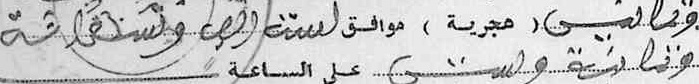 وثمانين ( هجرية ) موافق لسنة الف وتسعمائة
وثمانية وستين على الساعة